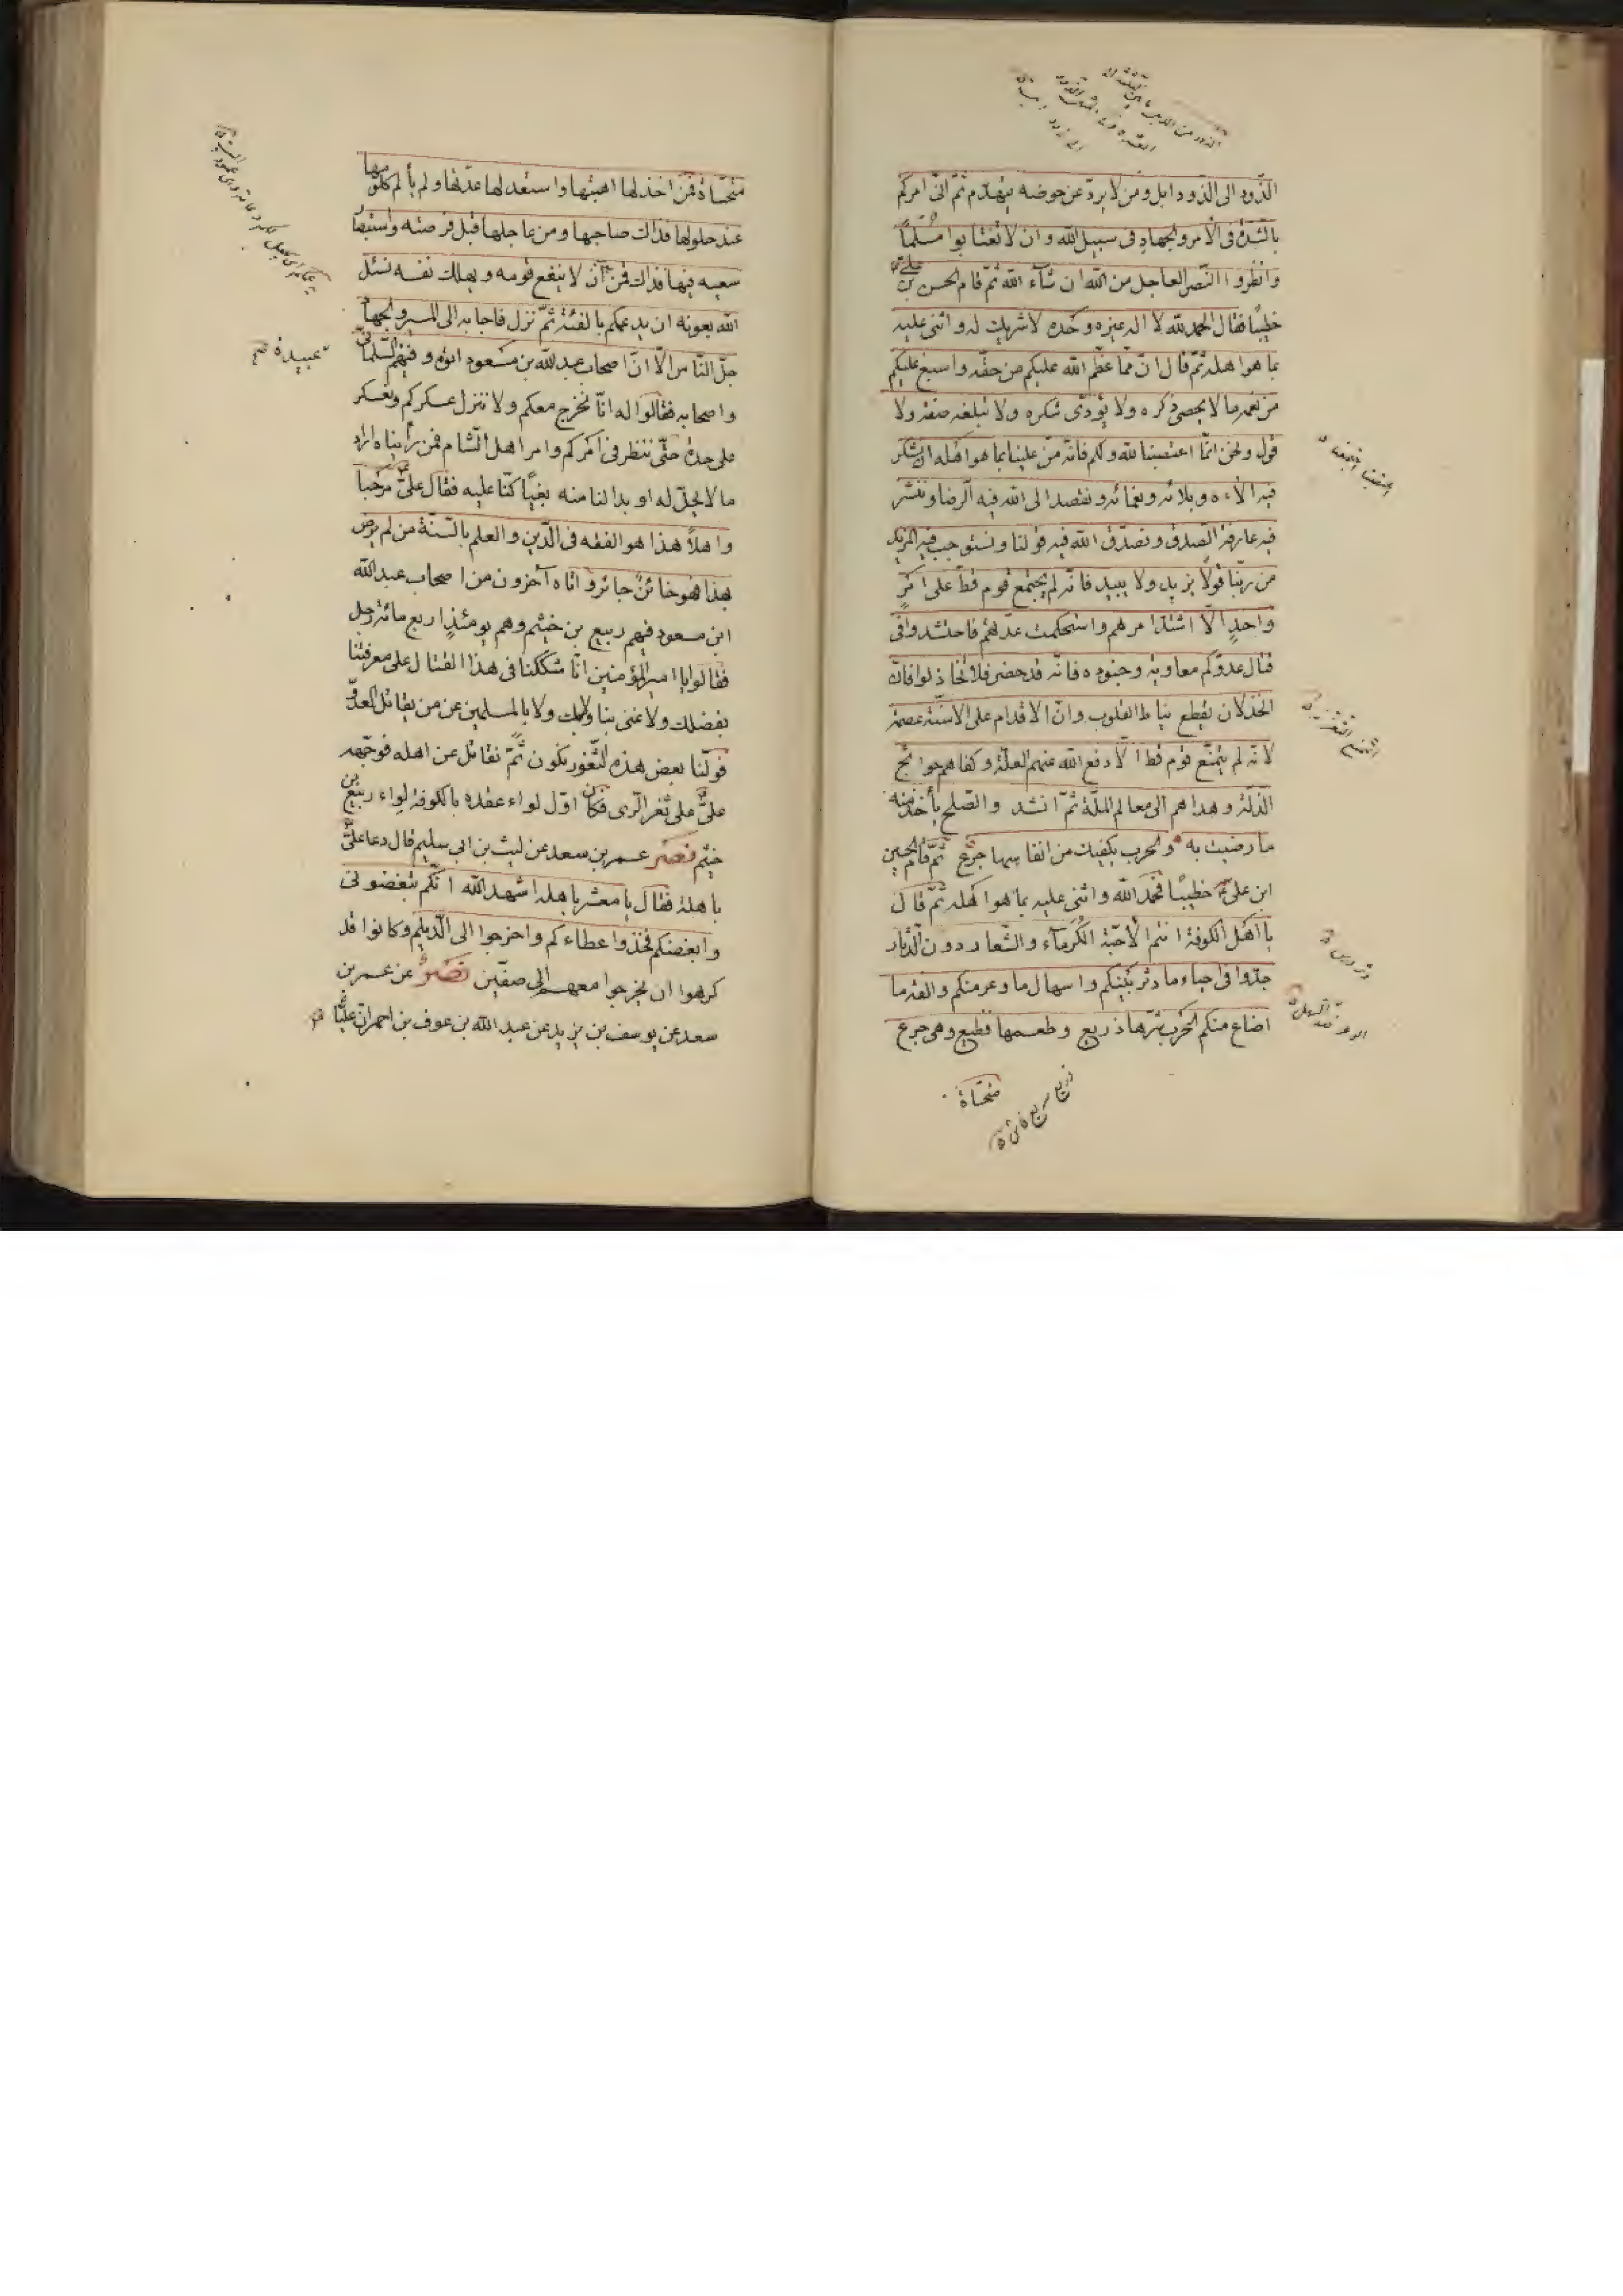 الذّود الى الذّود ابل ومن لا يردّ عن حوضه يتهدّم ثمّ انّى امركم
بالشدّة فى الامر والجهاد فى سبيل الله وان لا تغتابوا مسلماً
وانظروا النّصر العاجل من الله ان شآء الله ثمّ قام الحسن بن على
خطيبًا فقال الحمد لله لا اله غيره وحده لا شريك له واثنى عليه
بما هو اهله ثمّ قال انّ ممّا عظّم الله عليكم من حقّه واسبغ عليكم
من نعمه ما لا يحصى ذكره ولا يؤدّى شكره ولا تبلغه صفة ولا
قول ونحن انّما اغضبنا لله ولكم فانّه منّ علينا بما هو اهله ان نشكر
فيه الاءه وبلائه ونعمائه ونقصد الى الله فيه الرضا وننشر
فيه عارفة الصدق ونصدّق الله فيه قولنا ونستوجب فيه المزيد
من ربّنا قولاً يزيد ولا يبيد فانّه لم يجتمع قوم قطّ على امرٍ
واحدٍ الّا اشتدّ امرهم واستحكمت عدّتهم فاحتشدوا فى
قتال عدوّكم معاوية وجنوده فانّه قد حضر فلا تخاذلوا فانّ
الخذلان يقطع نياط القلوب وانّ الاقدام على الاسنّة عصمة
لانّه لم يتمنّع قوم قطّ الّا دفع الله عنهم العلّة وكفاهم حوائج
الذلّة وهداهم الى معالم الملّة ثمّ انشد والصّلح يأخذ منه
ما رضيت به والحرب يكفيك من انفاسها جرع ثمّ قام الحسين
ابن علىّ خطيبًا فحمد الله واثنى عليه بما هو اهله ثمّ قال
يا اهل الكوفة انتم الاحبّة الكرمآء والشّعار دون الدّثار
جدّوا فى احياء ما دثر بينكم واسهال ما وعر منكم والفة ما
اضاع منكم الحرب شرّها ذريع وطعمها فظيع وهى جرع
متحسّاة
متحسّاة فمن اخذ لها اهبتها واستعدّ لها عدّتها ولم يألم كلومها
عند حلولها فذاك صاحبها ومن عاجلها قبل فرصته واستبصار
سعيه فيها فذاك قمن ان لا ينفع قومه ويهلك نفسه نسئل
الله بعونه ان يدعمكم بالفئة ثمّ نزل فاجابه الى المسير والجهاد
جلّ النّاس الّا انّ اصحاب عبد الله بن مسعود اتوه وفيهم السّلمانى
عبيدة
واصحابه فقالوا له انّا نخرج معكم ولا ننزل عسكركم ونعسكر
على حدة حتّى ننظر فى امركم وامر اهل الشام فمن رأيناه اراد
ما لا يحلّ له او بدا لنا منه بغيًا كنّا عليه فقال علىّ مرحبا
واهلاً هذا هو الفقه فى الدّين والعلم بالسّنّة من لم يرض
بهذا فهو خائنٌ جائر واتاه آخرون من اصحاب عبد الله
ابن مسعود فيهم ربيع بن خثيم وهم يومئذٍ اربع مائة رجل
فقالوا يا امير المؤمنين انّا شككنا فى هذا القتال على معرفتنا
بفضلك ولا غنى بنا ولا بك ولا بالمسلمين عن من يقاتل العدوّ
فولّنا بعض هذه الثّغور نكون ثمّ نقاتل عن اهله فوجّهه
علىّ على ثغر الرّى فكان اوّل لواء عقده بالكوفة لواء ربيع بن
خثيم نصر عمر بن سعد عن ليث بن ابى سليم قال دعا علىّ
باهلة فقال يا معشر باهلة اشهد الله انّكم تبغضونى
وابغضكم فخذوا عطاءكم واخرجوا الى الدّيلم وكانوا قد
كرهوا ان يخرجوا معهم الى صفّين نصر عن عمر بن
سعد عن يوسف بن يزيد عن عبد الله بن عوف بن احمر انّ عليّا